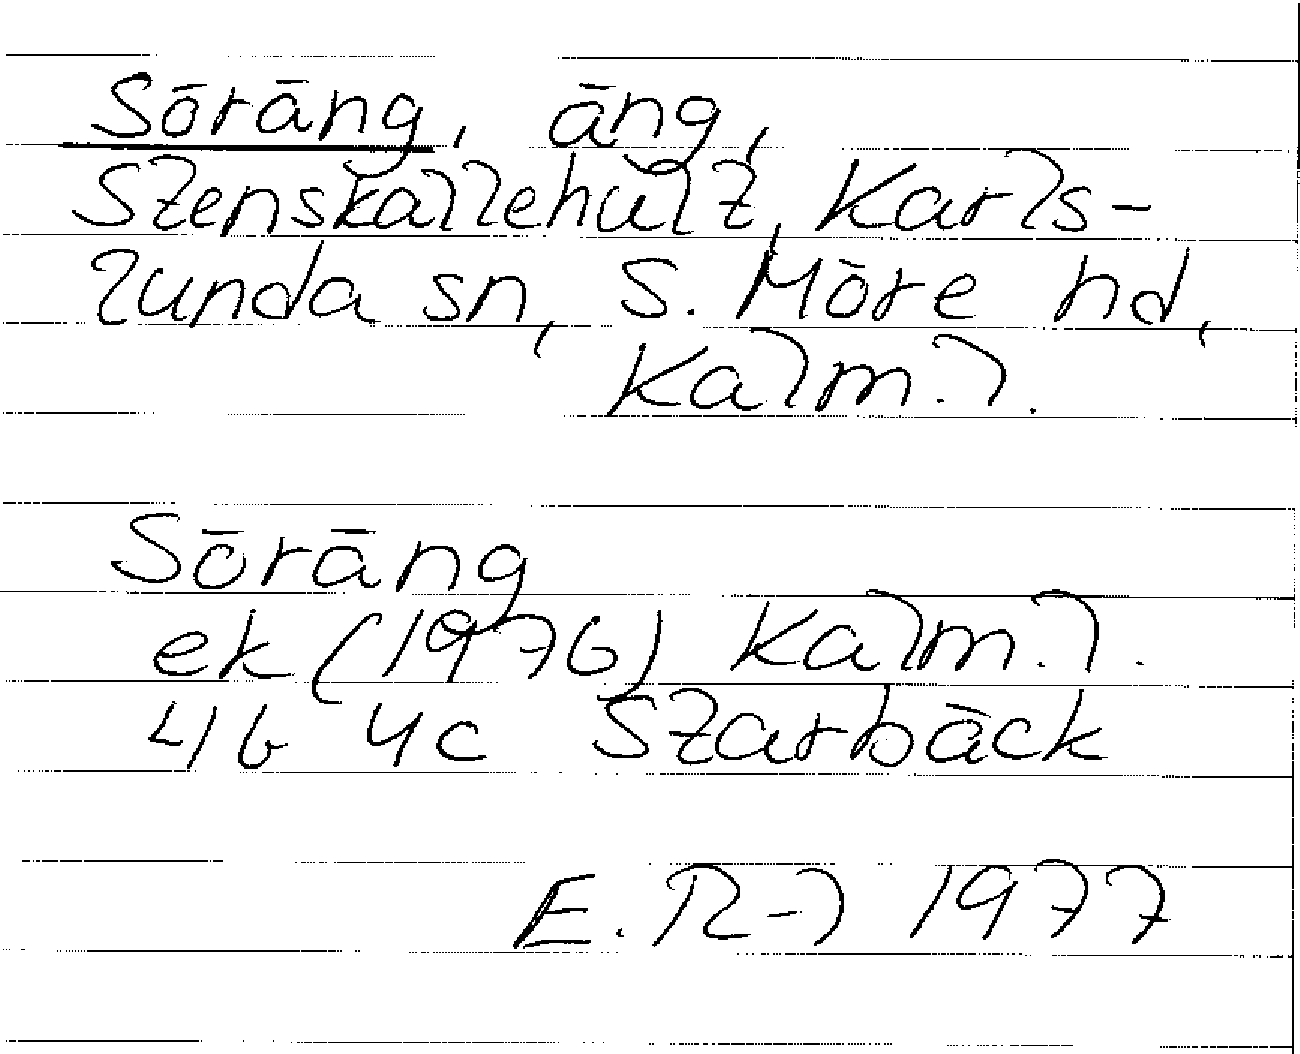 Söräng, äng,
Stenskallehult, Karls-
lunda sn, S. Möre hd,
Kalm. l.
Söräng
ek (1976) Kalm. l.
4G 4c Starbäck
E. R-l 1977